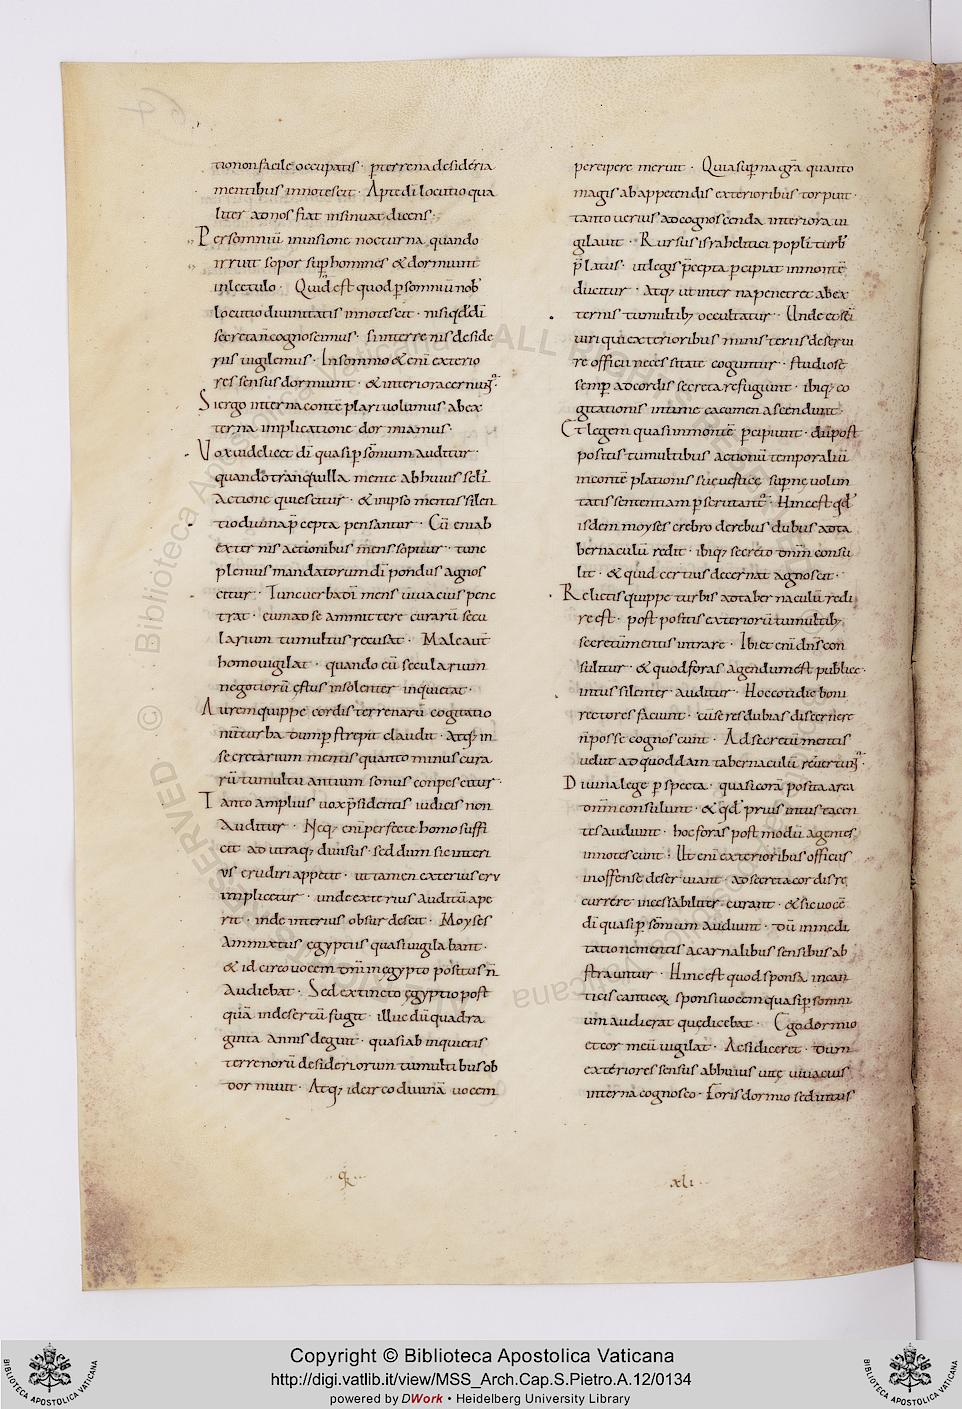 tionon facile occupatis · p terrena desideria
mentibus innotescit · Apte dī locutio qua
liter ad nos fiat insinuat dicens ·
Per somniū in uisione nocturna quando
irruit sopor sup homines & dormiunt
in lectulo · Quid est quod p somniū nob
locutio diuinitatis innotescit · nisi qđ dī
secreta n̄ cognoscimus · si in terrenis deside
riis uigilemus · In somnio & enī exterio
res sensus dormiunt · & interiora cernunt̄
Si ergo interna contēplari uolumus ab ex
terna implicatione dormiamus ·
Vox uidelicet dī quasi p sōnium auditur ·
quando tranquilla mente ab huius sēlī
actione quiescitur · & in ipso mentis silen
tio diuina p̄cepta pensantur · Cū eni ab
externis actionibus mens sopitur · tunc
plenius mandatorum dī pondus agnos
citur · Tunc uerba dī mens uiuacius pene
trat · cum ad se ammittere curarū secu
larium tumultus recusat · Male aut̄
homo uigilat · quando eū secularium
negotiorū ęstus insolenter inquietat ·
Aurem quippe cordis terrenarū cogitatio
nū turba dum pstrepit claudit · Atq; in
secretarium mentis quanto minus cura
rū tumultuantium sonus conpescitur ·
Tanto amplius uox p̄sidentis iudicis non
auditur · Neq; enī perfecte homo suffi
cit ad utraq; diuisus · sed dum sic interi
us erudiri appetit · ut tamen exterius
implicetur · unde exterius auditū ape
rit · inde interius obsurdescit · Moyses
ammixtus ęgyptiis quasi uigilabant ·
& idcirco uocem dnī in ęgypto positus n̄
audiebat · Sed extincto ęgyptio post
quā in desertū fugit · illuc dū quadra
ginta annis deguit · quasi ab inquietis
terrenorū desideriorum tumultibus ob
dormiuit · Atq; idcirco diuinā uocem
qR
percipere meruit · Quia sup̄na grā quanto
magis ab appetendis exterioribus torpuit ·
tanto uerius ad cognoscenda interiora ui
gilauit · Rursus israhelitici popli turb
p̄latus · ut legis p̄cepta percipiat in montē
ducitur · Atq; ut interna penetret ab ex
ternis tumultib; occultatur · Unde et sc̄i
uiri qui exterioribus ministeriis deserui
re officii necessitate coguntur · studiose
semp ad cordis secreta refugiunt · ibiq; co
gitationis intime cacumen ascendunt ·
Et legem quasi in montē pcipiunt · dū post
positis tumultibus actionū temporaliū
in contēplationis suę uertice supnę uolun
tatis sententiam pscrutant̄ · Hinc est qđ
isdem moyses crebro de rebus dubiis ad ta
bernaculū redit · ibiq; secreto dnm consu
lit · & quid certius decernat agnoscit ·
Relictis quippe turbis ad tabernaculū redi
re est · postpositis exteriorū tumultib;
secretū mentis intrare · Ibi et enī dns con
sulitur · & quod foras agendum est publice ·
intus silenter auditur · Hoc cotidie boni
rectores faciunt · cū se res dubias discernere
n̄ posse cognoscunt · Ad secretū mentis
uelut ad quoddam tabernaculū reuertunt̄ ·
Diuina lege pspecta · quasi corā posita arca
dnm consulunt · & qđ prius intus tacen
tes audiunt · hoc foras postmodū agentes
innotescunt · Ut enī exterioribus officiis
inoffense deseruiant · ad secreta cordis re
currere incessabiliter curant · & sic uocē
dī quasi p sōnium audiunt · dū in medi
tatione mentis a carnalibus sensibus ab
strauntur · Hinc est quod sponsa in can
ticis canticoꝝ sponsi uocem quasi p somni
um audierat quę dicebat · Ego dormio
et cor meū uigilat · Ac si diceret · dum
exteriores sensus ab huius uitę uiuacius
interna cognosco · Foris dormio sed intus
xLi
© Biblioteca Apostolica Vaticana ALL RIGHTS RESERVED
Copyright © Biblioteca Apostolica Vaticana
http://digi.vatlib.it/view/MSS_Arch.Cap.S.Pietro.A.12/0134
powered by DWork • Heidelberg University Library
BIBLIOTECA APOSTOLICA VATICANA
BIBLIOTECA APOSTOLICA VATICANA